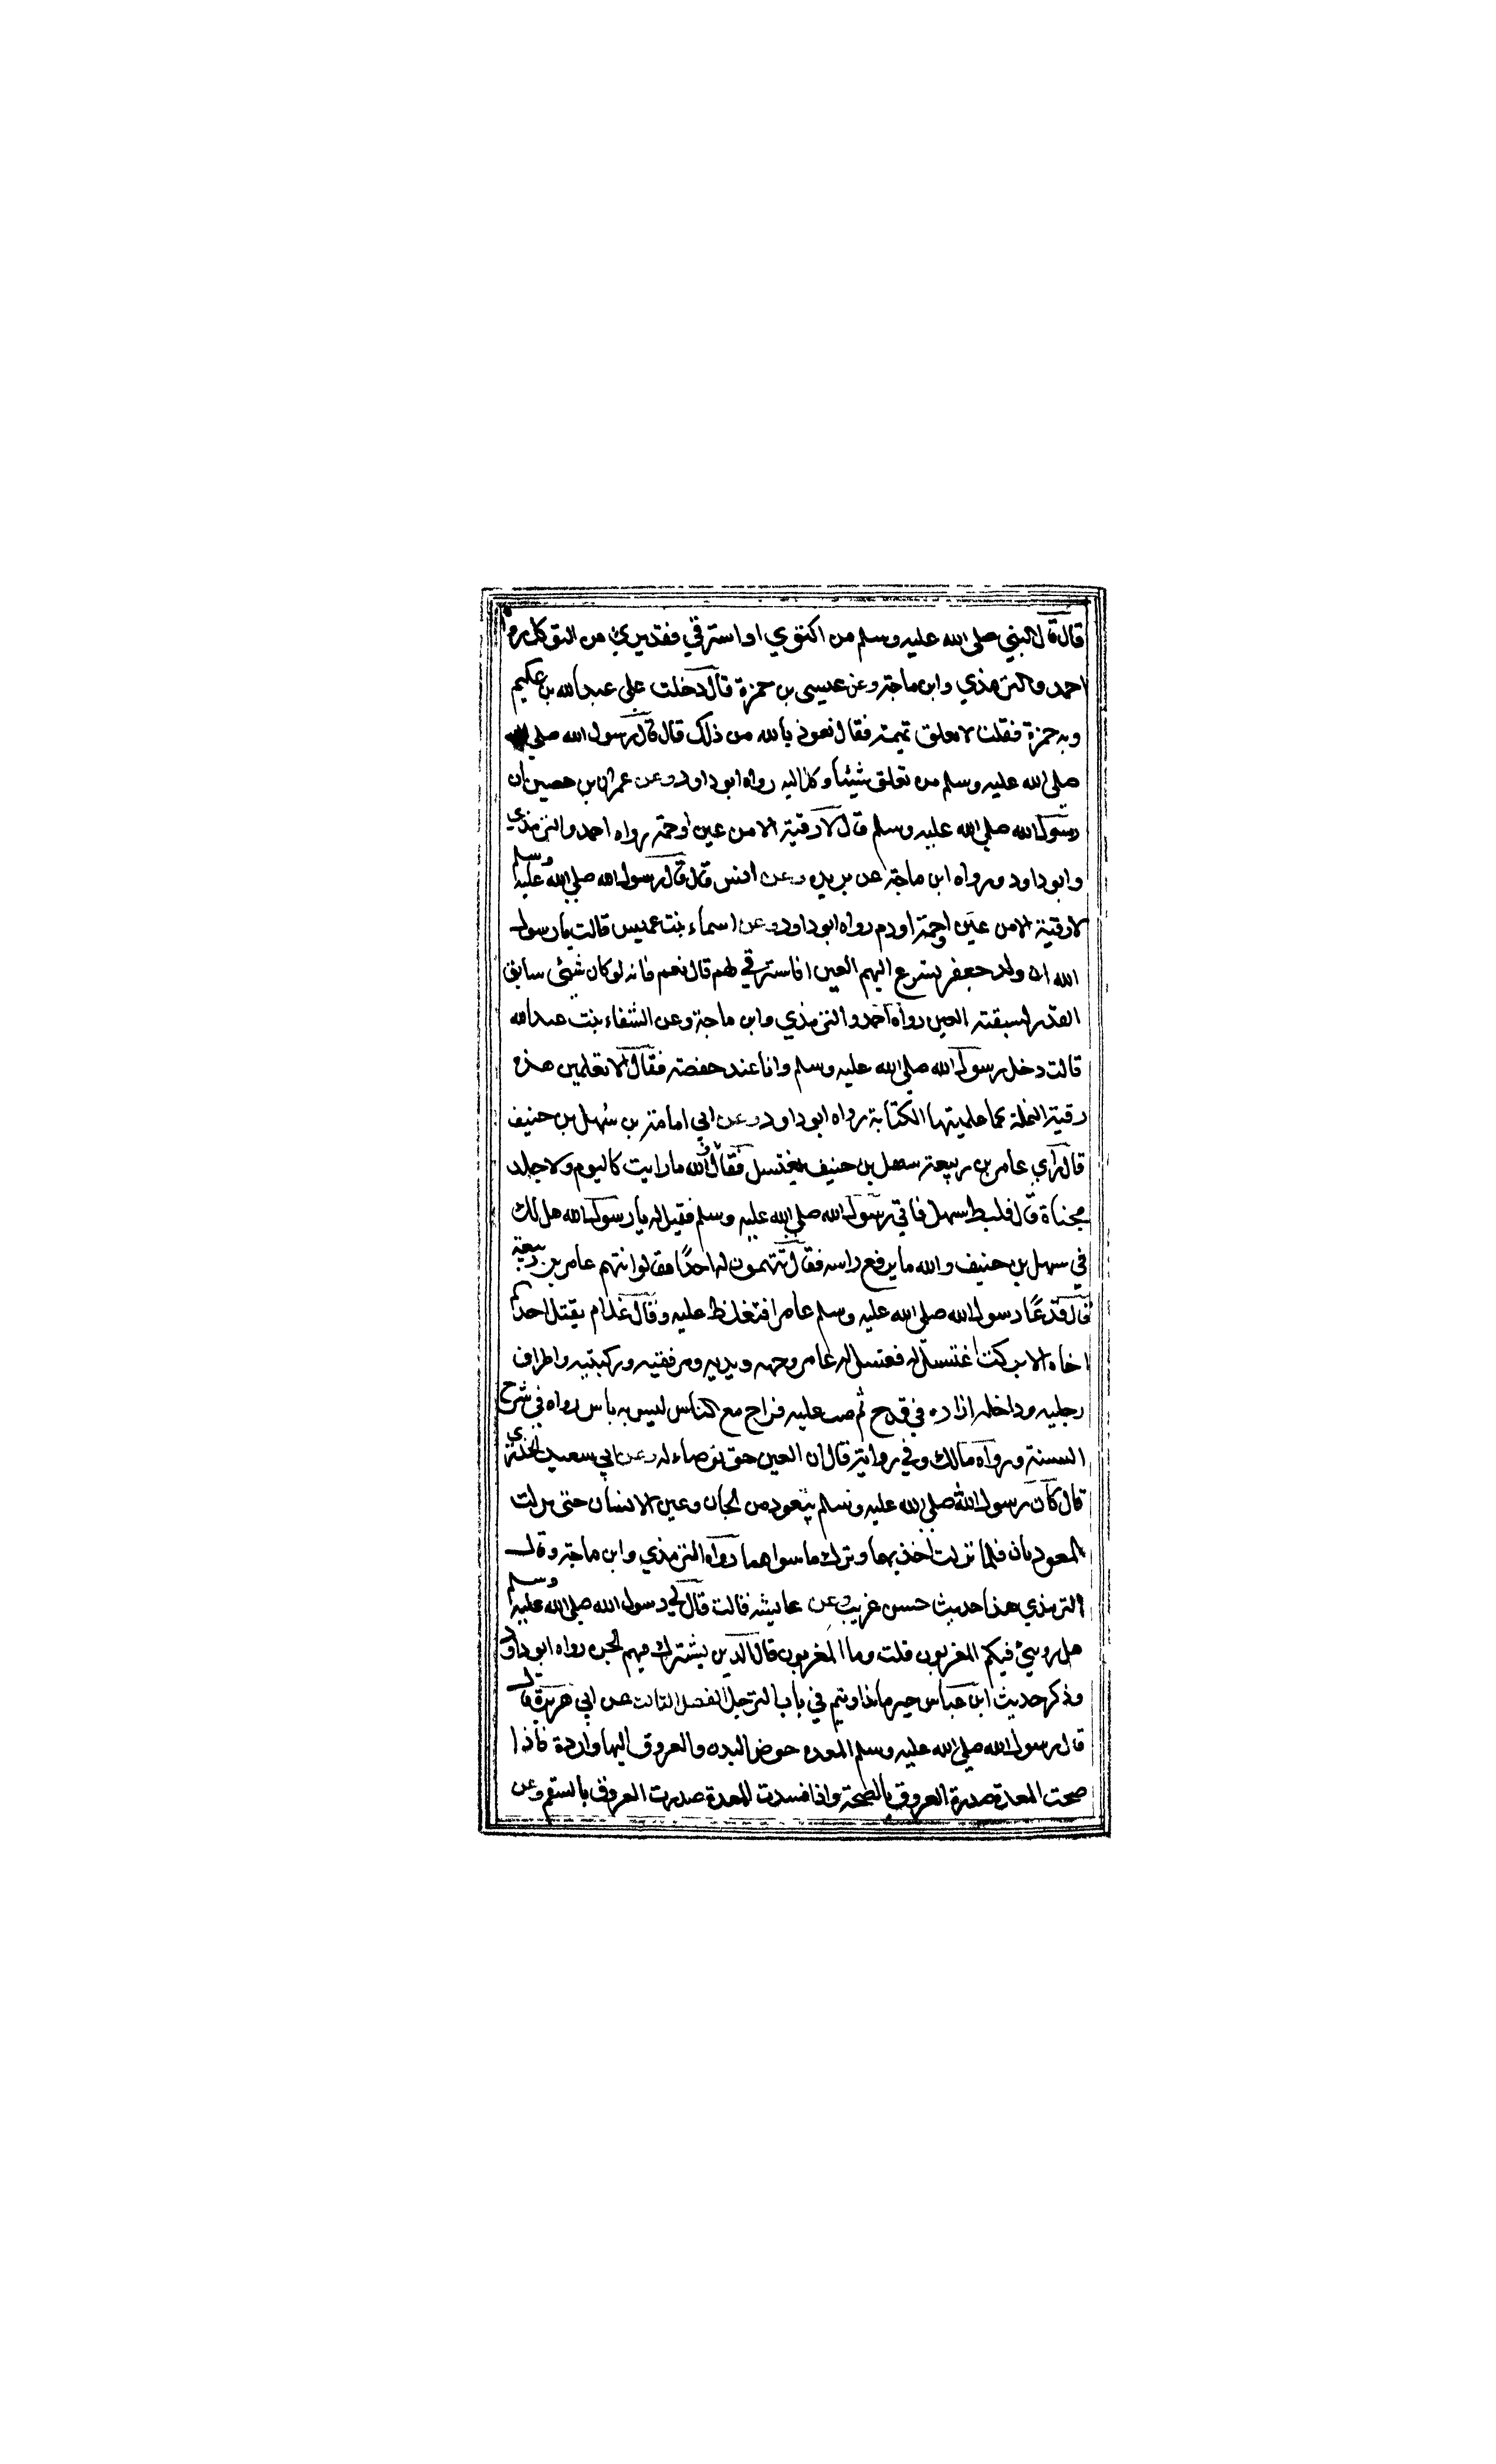 قال قال النبي صلى الله عليه وسلم من اكتوي او استرقي فقد بري من التوكل رواه
احمد والترمذي وابن ماجة وعن عيسى بن حمزة قال دخلت على عبد الله بن عكيم
وبه حمزة فقلت لا تعلق تميمة فقال نعوذ بالله من ذلك قال قال رسول الله صلى الله
صلى الله عليه وسلم من تعلق شيئا وكل اليه رواه ابو داود وعن عمران بن حصين ان
رسول الله صلى الله عليه وسلم قال لا رقية الا من عين او حمة رواه احمد والترمذي
وابو داود ورواه ابن ماجة عن بريده وعن انس قال قال رسول الله صلى الله عليه وسلم
لا رقية الا من عين او حمة او دم رواه ابو داود وعن اسماء بنت عميس قالت يا رسول
الله ان ولد جعفر يسرع اليهم العين افاسترقي لهم قال نعم فانه لو كان شئ سابق
القدر لسبقته العين رواه احمد والترمذي وابن ماجة وعن الشفاء بنت عبد الله
قالت دخل رسول الله صلى الله عليه وسلم وانا عند حفصة فقال الا تعلمين هذه
رقية النملة كما علمتيها الكتابة رواه ابو داود وعن ابي امامة بن سهل بن حنيف
قال رآي عامر بن ربيعة سهل بن حنيف يغتسل فقال والله ما رايت كاليوم ولا جلد
مخباة قال فلبط سهل فاتي رسول الله صلى الله عليه وسلم فقيل له يا رسول الله هل لك
في سهل بن حنيف والله ما يرفع راسه فقال تتهمون له احدا فقالوا نتهم عامر بن ربيعة
قال فدعا رسول الله صلى الله عليه وسلم عامرا فتغلظ عليه وقال علام يقتل احدكم
اخاه الا بركت اغتسل له فغتسل له عامر وجهه ويديه ومرفقيه وركبتيه واطراف
رجليه وداخلة ازاره في قدح ثم صب عليه فراح مع الناس ليس به باس رواه في شرح
السنة ورواه مالك وفي رواية قال ان العين حق توضاء له وعن ابي سعيد الخدري
قال كان رسول الله صلى الله عليه وسلم يتعوذ من الجان وعين الانسان حتى نزلت
المعوذتان فلما نزلت اخذ بهما وترك ما سواهما رواه الترمذي وابن ماجة وقال
الترمذي هذا حديث حسن غريب وعن عايشه قالت قال لي رسول الله صلى الله عليه وسلم
هل روئي فيكم المغربون قلت وما المغربون قال الذين يشترك فيهم الجن رواه ابو داود
وذكر حديث ابن عباس خير ما تداويتم في باب الترجل الفصل الثالث عن ابي هريرة قال
قال رسول الله صلى الله عليه وسلم المعده حوض البدن والعروق اليها واردة فاذا
صحت المعدة صدرة العروق بالصحة واذا فسدت المعدة صدرت العروق بالسقم وعن